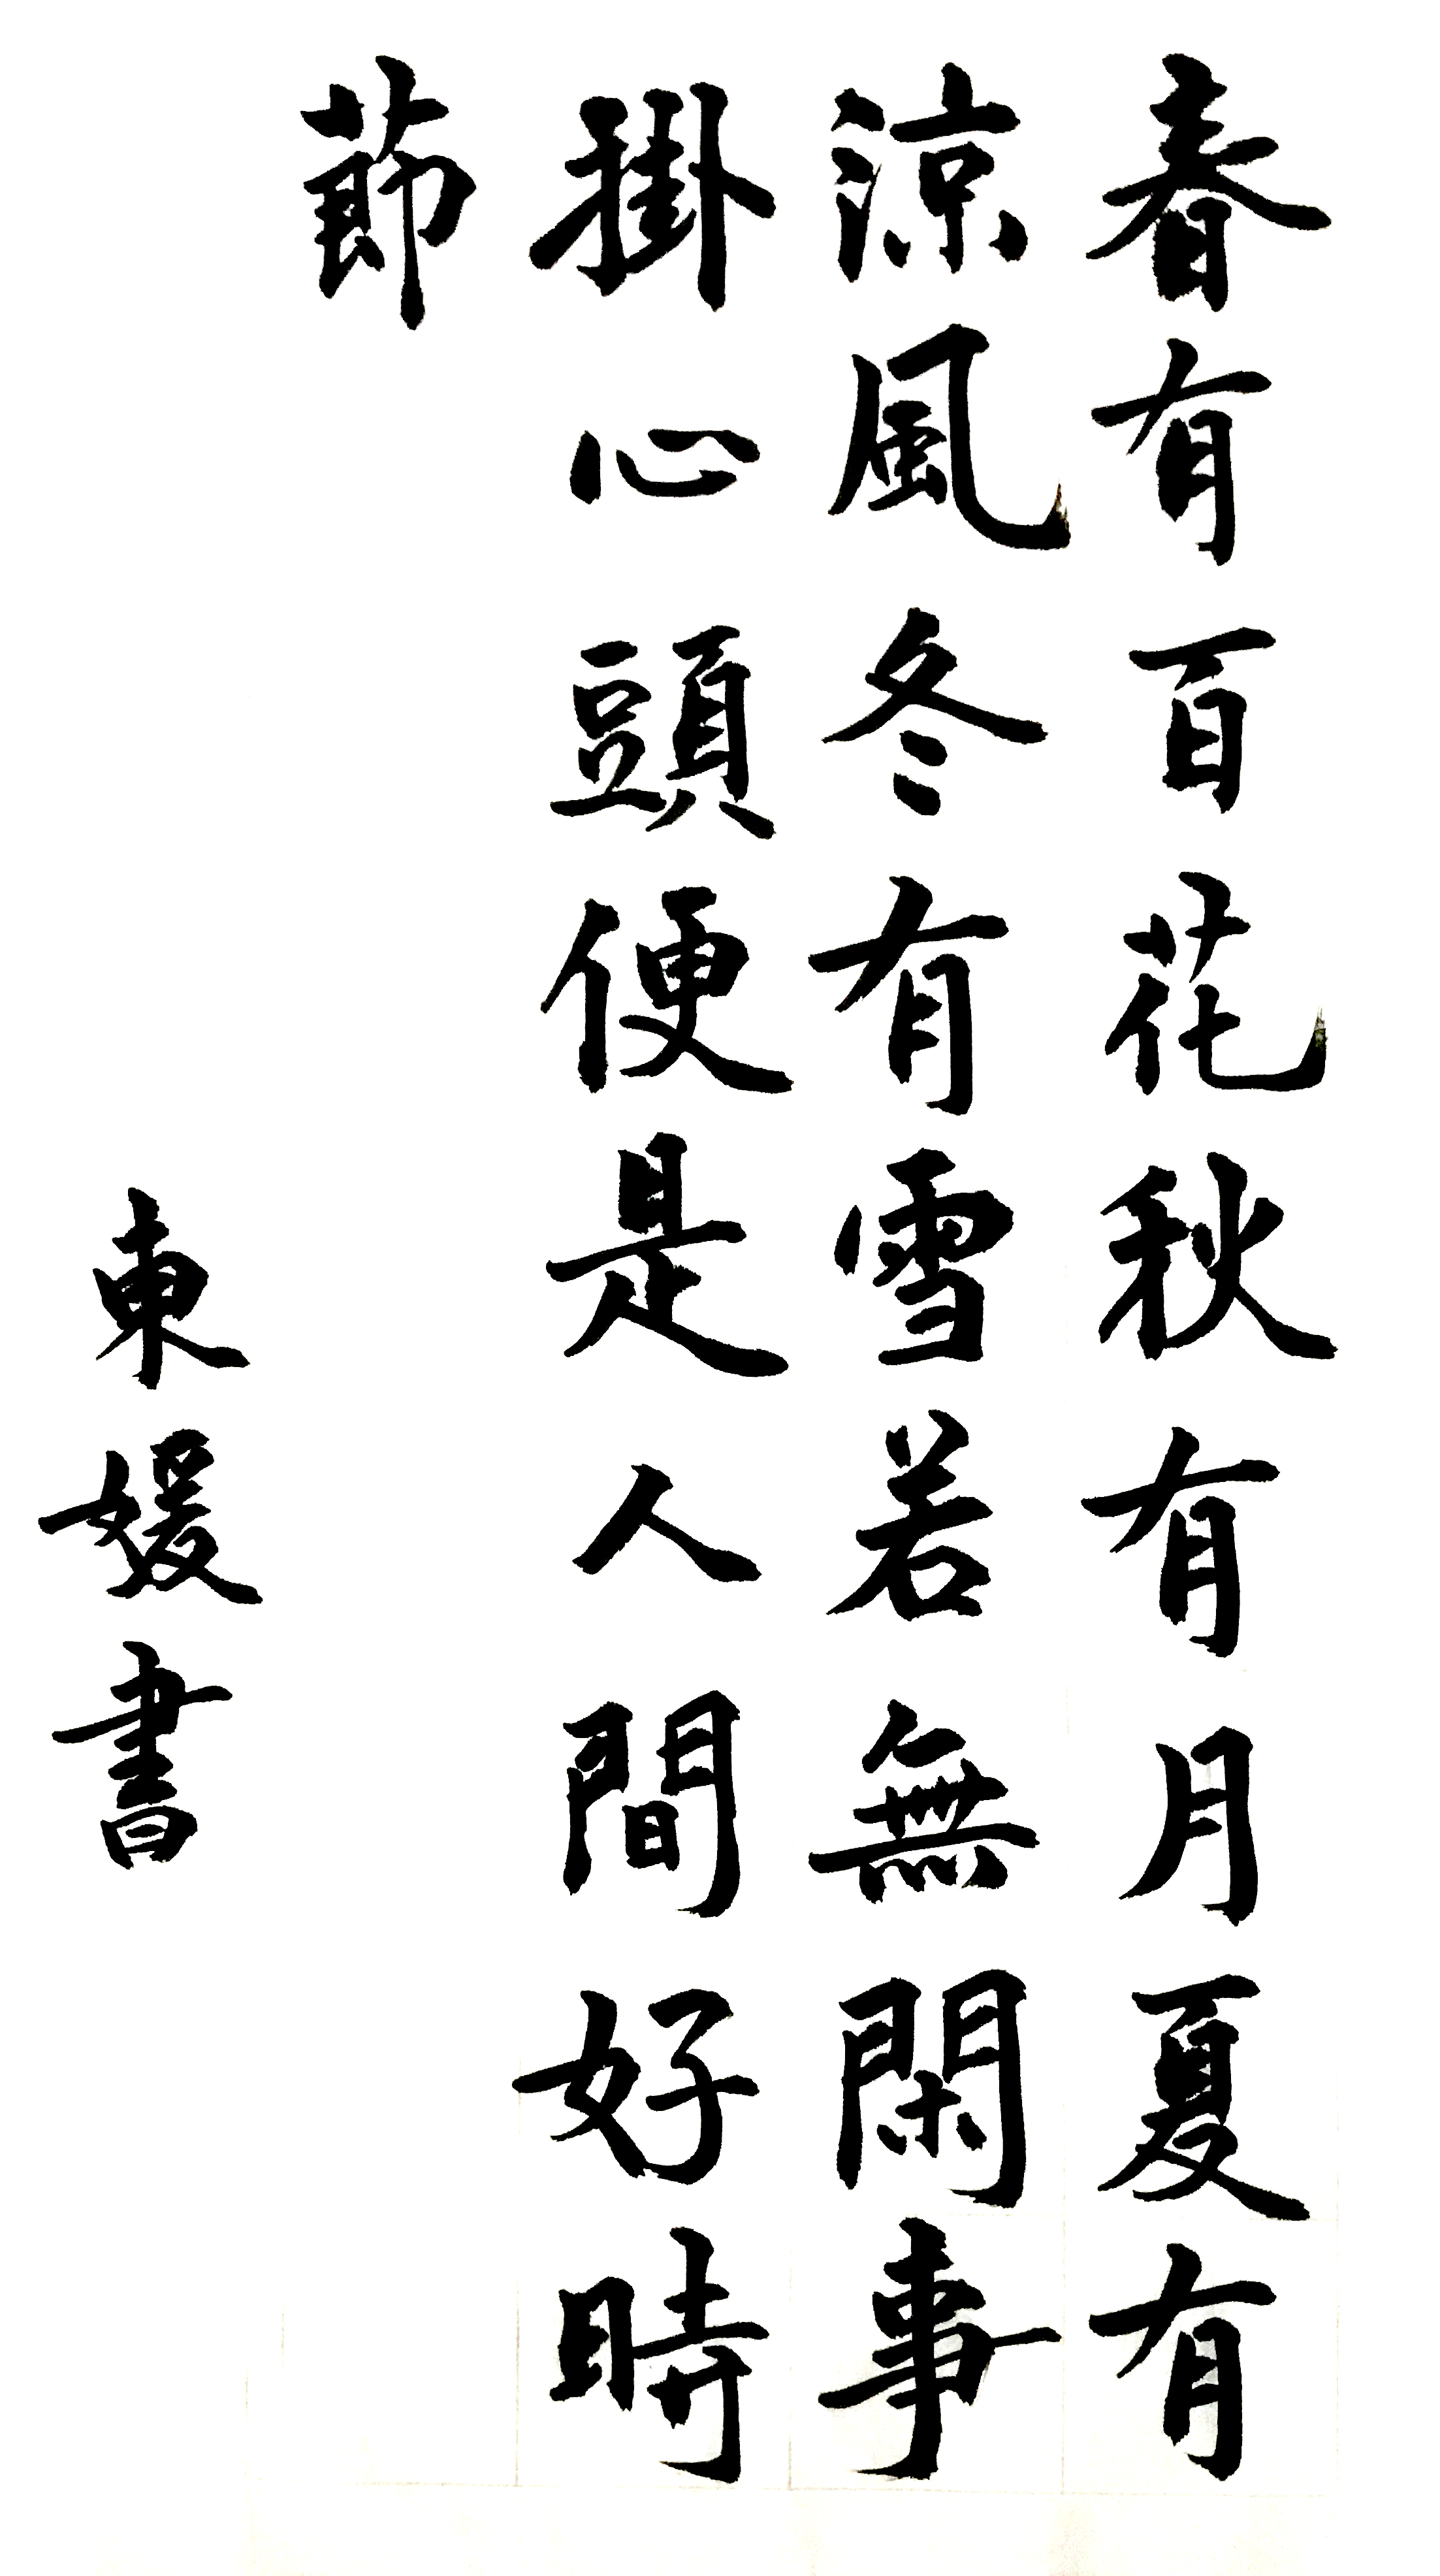 春有百花秋有月夏有
涼風冬有雪若無閑事
掛心頭便是人間好時
節
東媛書